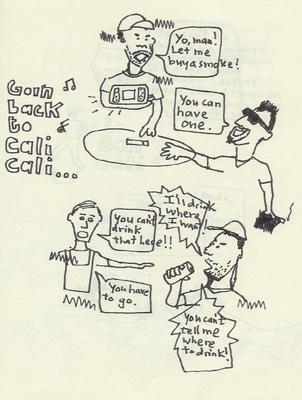 Yo, man!
Let me
buy a smoke!
Goin
back
to
Cali
Cali...
You can
have
one.
I'll drink
where
I want!
You can't
drink
that here!!
You have
to go.
You can't
tell me
where
to drink!